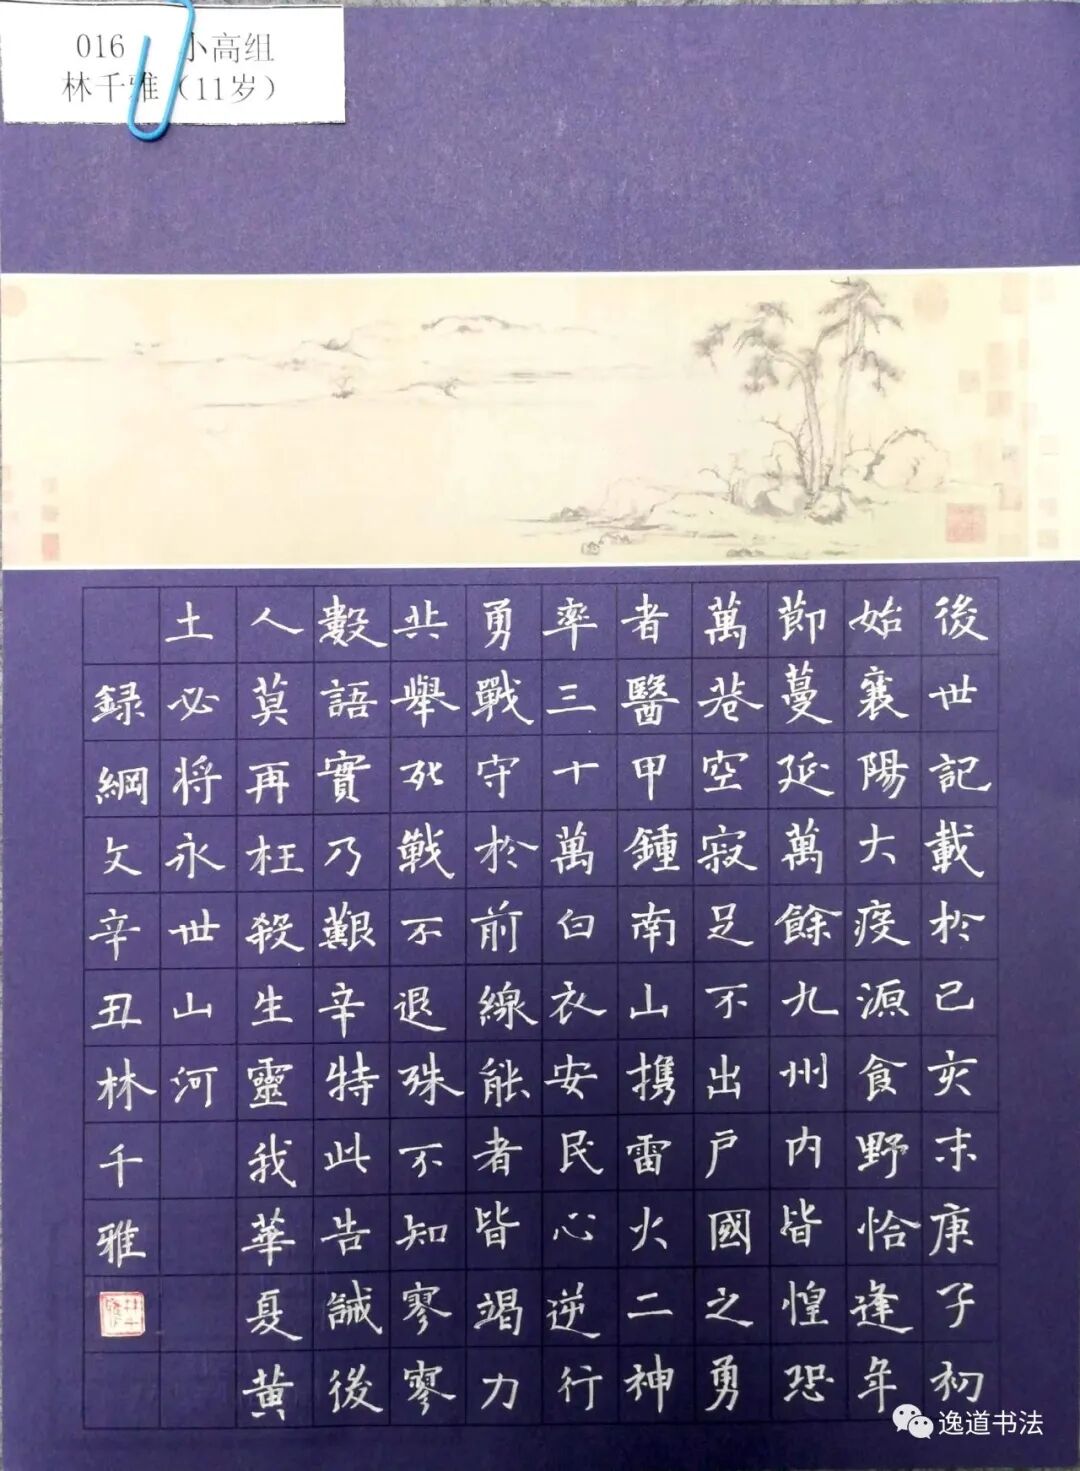 016 小高组
林千雅（11岁）
後世記載於己亥末庚子初
始襄陽大疫源食野恰逢年
節蔓延萬餘九州内皆惶恐
萬巷空寂足不出戸國之勇
者醫甲鍾南山携雷火二神
率三十萬白衣安民心逆行
勇戰守於前線能者皆竭力
共舉死戰不退殊不知寥寥
數語實乃艱辛特此告誡後
人莫再枉殺生靈我華夏黄
土必将永世山河
録網文辛丑林千雅
逸道书法